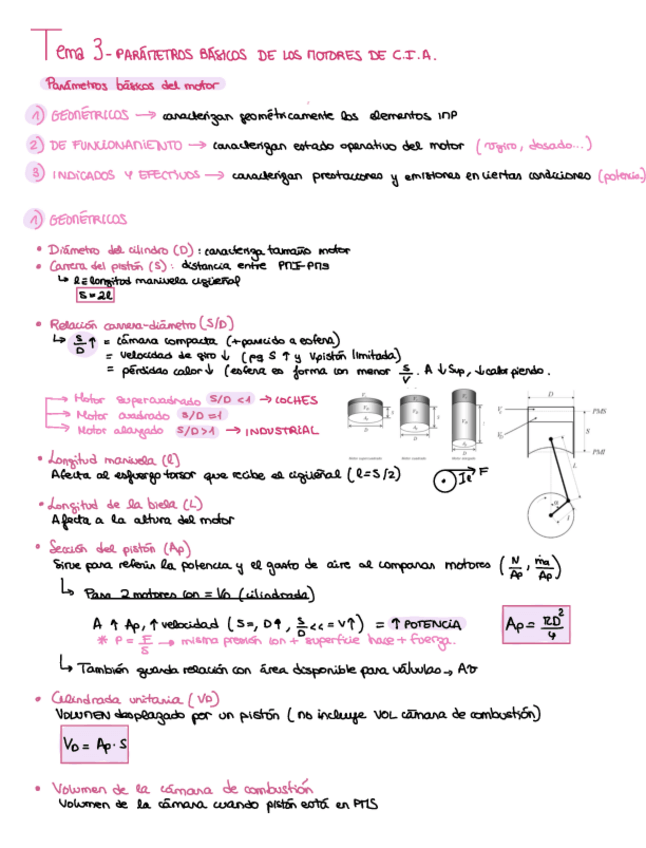 Tema 3 - PARÁMETROS BÁSICOS DE LOS MOTORES DE C.I.A.
Parámetros básicos del motor
1) GEOMÉTRICOS → caracterizan geométricamente los elementos INP
2) DE FUNCIONAMIENTO → caracterizan estado operativo del motor (vgiro, dosado...)
3) INDICADOS Y EFECTIVOS → caracterizan prestaciones y emisiones en ciertas condiciones (potencia.)
1) GEOMÉTRICOS
• Diámetro del cilindro (D): caracteriza tamaño motor
• Carrera del pistón (S): distancia entre PMI-PMS
↳ l ≡ longitud manivela cigüeñal
S = 2l
• Relación carrera-diámetro (S/D)
↳ S/D ↑ = cámara compacta (+parecido a esfera)
= velocidad de giro ↓ (pq S ↑ y Vpistón limitada)
= pérdidas calor ↓ (esfera es forma con menor S/V. A ↓ Sup, ↓ calor pierdo.
→ Motor supercuadrado S/D < 1 → COCHES
→ Motor cuadrado S/D = 1
→ Motor alargado S/D > 1 → INDUSTRIAL
Motor supercuadrado Motor cuadrado Motor alargado
D
PMS
S
PMI
L
• Longitud manivela (l)
Afecta al esfuerzo torsor que recibe el cigüeñal (l = S/2)
F
• Longitud de la biela (L)
Afecta a la altura del motor
• Sección del pistón (Ap)
Sirve para referir la potencia y el gasto de aire al comparar motores (N/Ap, ṁa/Ap)
↳ Para 2 motores con = VD (cilindrada)
A ↑ Ap, ↑ velocidad (S=, D↑, S/D << = V↑) = ↑ POTENCIA
* P = F/S → misma presión con + superficie hace + fuerza.
Ap = πD²/4
↳ También guarda relación con área disponible para válvulas → Av
• Cilindrada unitaria (VD)
VOLUMEN desplazado por un pistón (no incluye VOL cámara de combustión)
VD = Ap · S
• Volumen de la cámara de combustión
Volumen de la cámara cuando pistón está en PMS